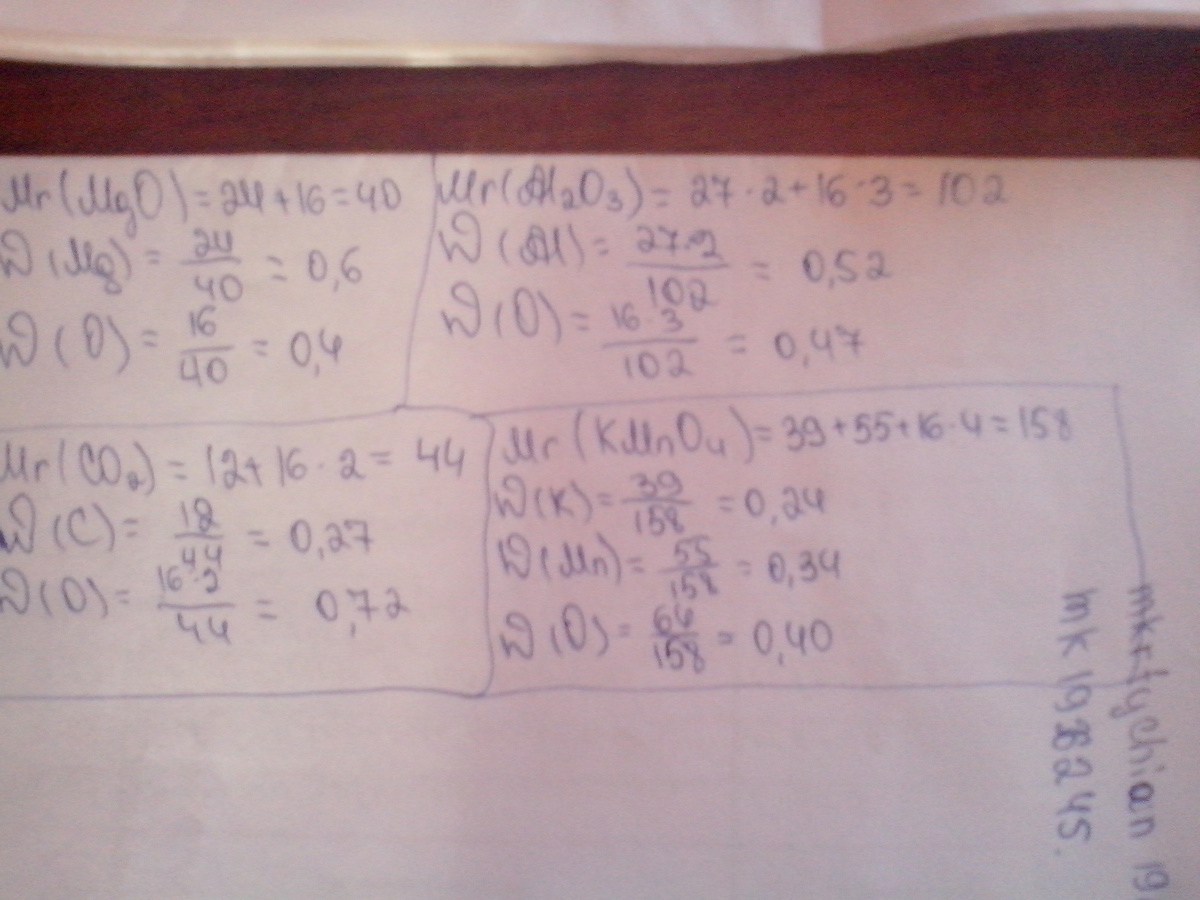 Mr(MgO)=24+16=40
W(Mg)= 24/40 = 0,6
W(O)= 16/40 = 0,4
Mr(Al₂O₃)= 27·2+16·3=102
W(Al)= 27·2/102 = 0,52
W(O)= 16·3/102 = 0,47
Mr(CO₂)=12+16·2=44
W(C)= 12/44 = 0,27
W(O)= 16·2/44 = 0,72
Mr(KMnO₄)=39+55+16·4=158
W(K)= 39/158 =0,24
W(Mn)= 55/158 =0,34
W(O)= 64/158 = 0,40
mkrtychian 19